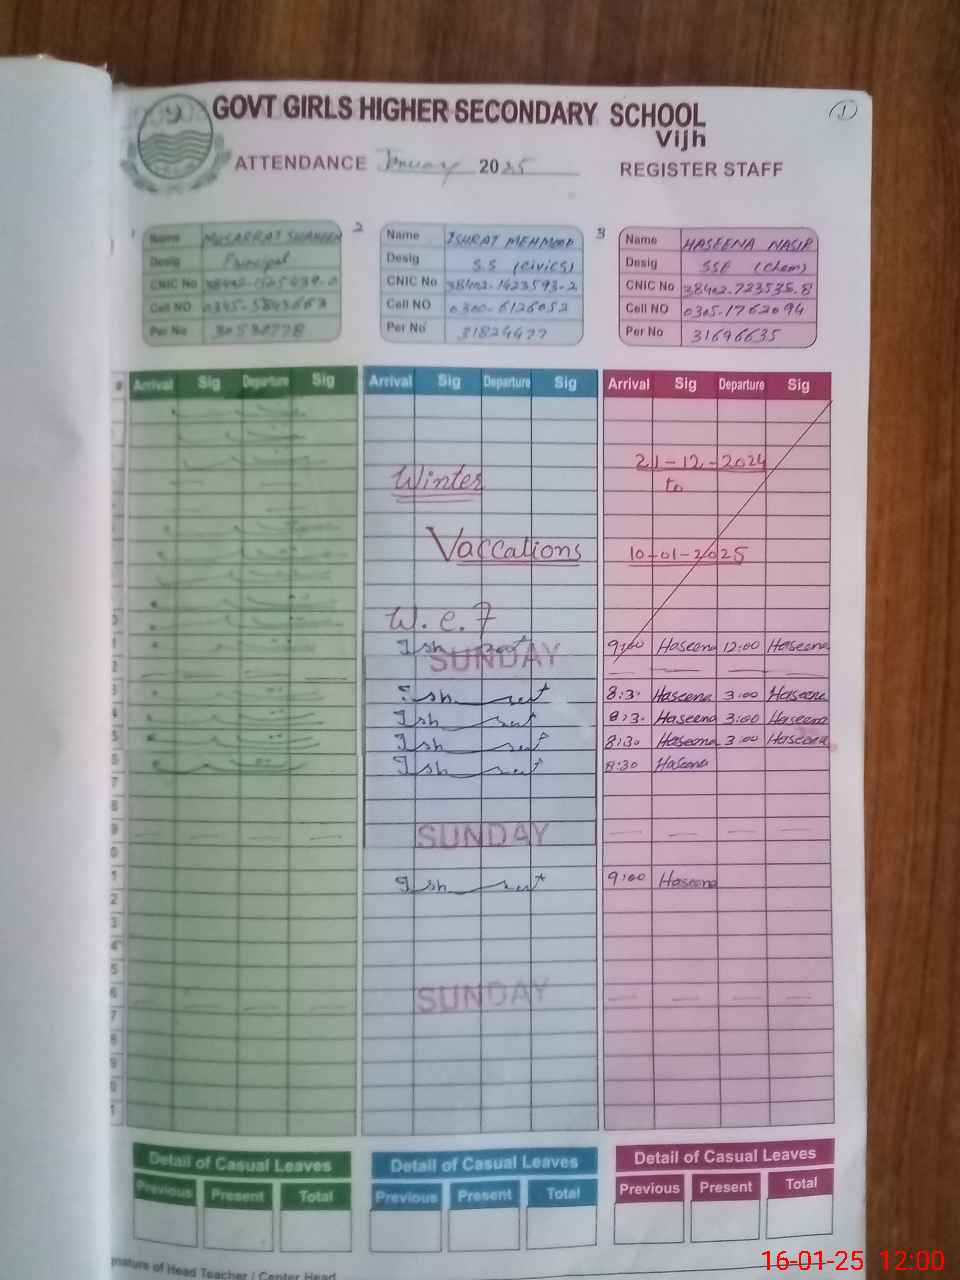 GOVT GIRLS HIGHER SECONDARY SCHOOL
Vijh
1
ATTENDANCE January 2025 REGISTER STAFF
1
Name MUSARRAT SHAHEEN
Desig Principal
CNIC No
Cell NO 0345-5843663
Per No 30530778
2
Name ISHRAT MEHMOOD
Desig S.S (Civics)
CNIC No 38402-1423593-2
Cell NO 0300-6126052
Per No 31824477
3
Name HASEENA NASIR
Desig SSE (Chem)
CNIC No 38402-723535-8
Cell NO 0305-1762094
Per No 31696635
# Arrival Sig Departure Sig Arrival Sig Departure Sig Arrival Sig Departure Sig
21-12-2024
Winter to
Vaccations 10-01-2025
W.e.f
1 9:00 Haseena 12:00 Haseena
2 SUNDAY
3 Ish rat 8:3. Haseena 3:00 Haseena
4 Ish rat 8:3. Haseena 3:00 Haseena
5 Ish rat 8:30 Haseena 3:00 Haseena
6 Ish rat 8:30 Haseena
7
8
9 SUNDAY
0
1 Ish rat 9:00 Haseena
2
3
4
5
6 SUNDAY
7
8
9
0
1
Detail of Casual Leaves Detail of Casual Leaves Detail of Casual Leaves
Previous Present Total Previous Present Total Previous Present Total
nature of Head Teacher / Center Head
16-01-25 12:00